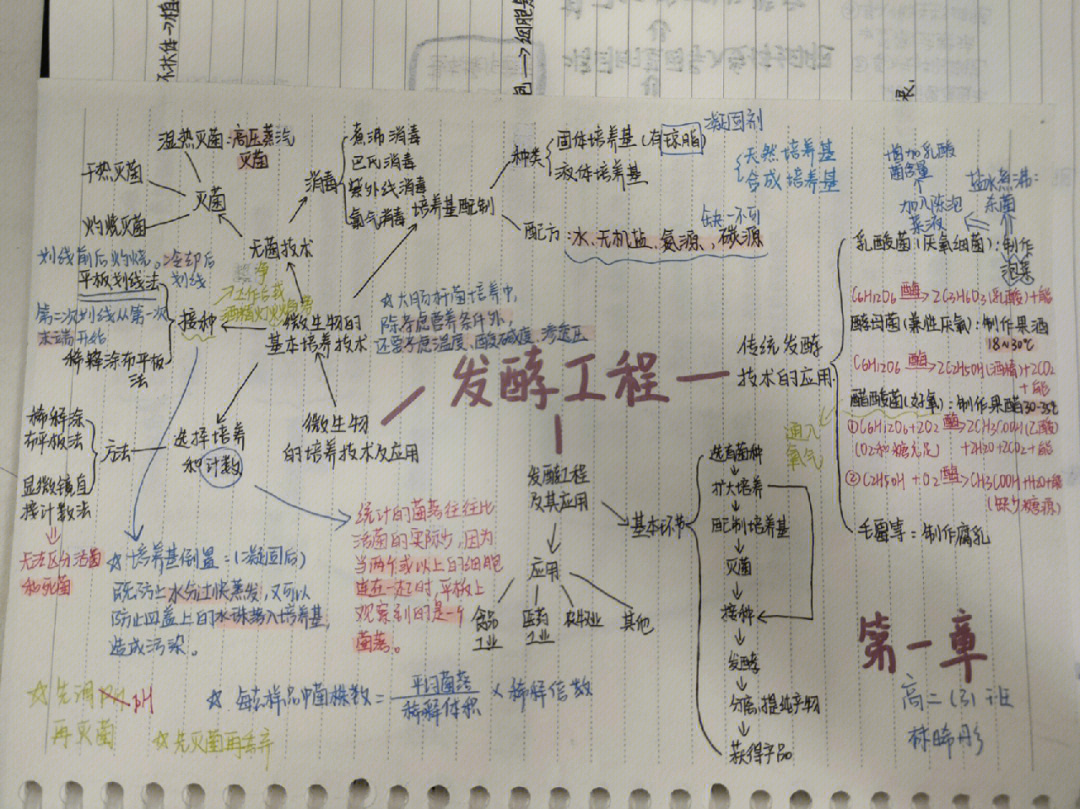 不状体→植
色→细胞
果.
湿热灭菌:高压蒸汽
灭菌
干热灭菌
灭菌
灼烧灭菌
消毒
煮沸消毒
巴氏消毒
紫外线消毒
氯气消毒
无菌技术
培养基配制
种类
固体培养基(有琼脂)
凝固剂
液体培养基
天然培养基
合成培养基
配方:水、无机盐、氮源、碳源
缺一不可
划线前后灼烧。冷却后
划线
平板划线法
第二次划线从第一次
末端开始
接种
稀释涂布平板
法
净
工作台或
酒精灯火焰旁
微生物的
基本培养技术
☆大肠杆菌培养中,
除考虑营养条件外,
还要考虑温度、酸碱度、渗透压
发酵工程
微生物
的培养技术及应用
选择培养
和计数
方法
稀释涂
布平板法
显微镜直
接计数法
无法区分活菌
和死菌
☆培养基倒置:(凝固后)
既防止水分过快蒸发,又可以
防止皿盖上的水珠落入培养基,
造成污染。
统计的菌落往往比
活菌的实际少,因为
当两个或以上的细胞
连在一起时,平板上
观察到的是一个
菌落。
☆先调pH
再灭菌
☆先灭菌再丢弃
☆每克样品中菌株数=平均菌落/稀释体积×稀释倍数
发酵工程
及其应用
应用
食品
工业
医药
工业
农牧业
其他
基本环节
选育菌种
扩大培养
配制培养基
灭菌
接种
发酵
分离、提纯产物
获得产品
传统发酵
技术的应用
增加乳酸
菌含量
加入陈泡
菜液
盐水煮沸:
杀菌
乳酸菌(厌氧细菌):制作
泡菜
C6H12O6 酶→2C3H6O3(乳酸)+能
酵母菌(兼性厌氧):制作果酒
18~30℃
C6H12O6 酶→2C2H5OH(酒精)+2CO2
+能
醋酸菌(好氧):制作果醋30-35℃
通入
氧气
①C6H12O6+2O2 酶→2CH3COOH(乙酸)
(O2和糖充足 +2H2O+2CO2+能
②C2H5OH+O2 酶→CH3COOH+H2O+能
(缺少糖源)
毛霉等:制作腐乳
第一章
高二(3)班